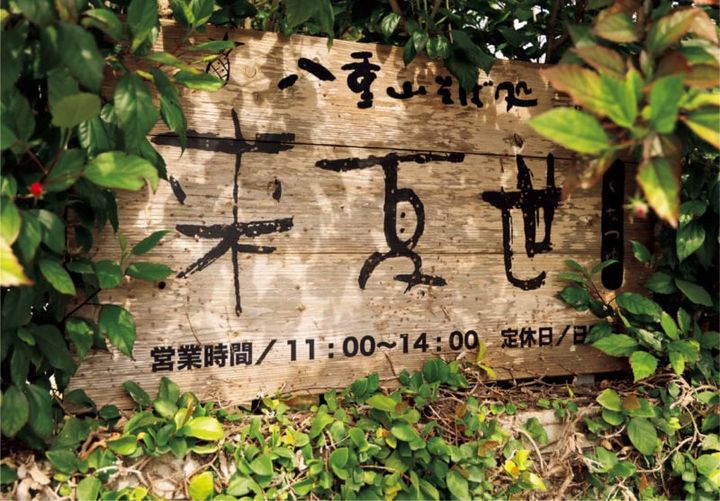 八重山そば処
来夏世
営業時間／11：00～14：00 定休日／日